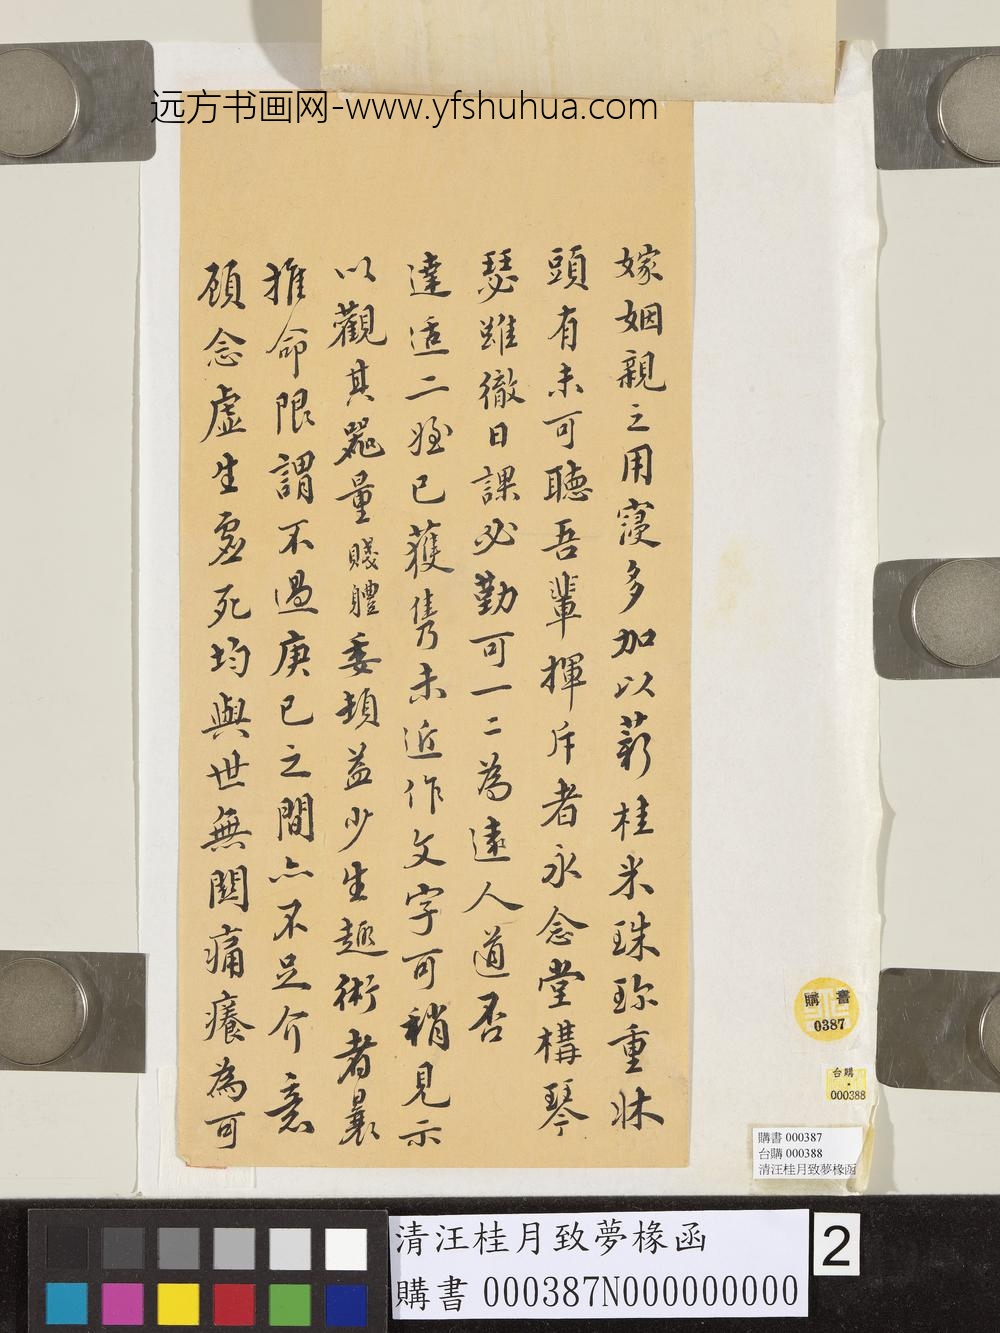 远方书画网-www.yfshuhua.com
嫁姻親之用寖多加以薪桂米珠珎重牀
頭有未可聽吾輩揮斥者永念堂構琴
瑟雖徹日課必勤可一二為遠人道否
達适二姪已獲雋未近作文字可稍見示
以觀其器量賤體委頓益少生趣術者曩
推命限謂不過庚巳之間亦不足介意
顧念虛生虛死均與世無關痛癢為可
購書
0387
台購
000388
購書 000387
台購 000388
清汪桂月致夢椽函
清汪桂月致夢椽函
購書 000387N000000000
2